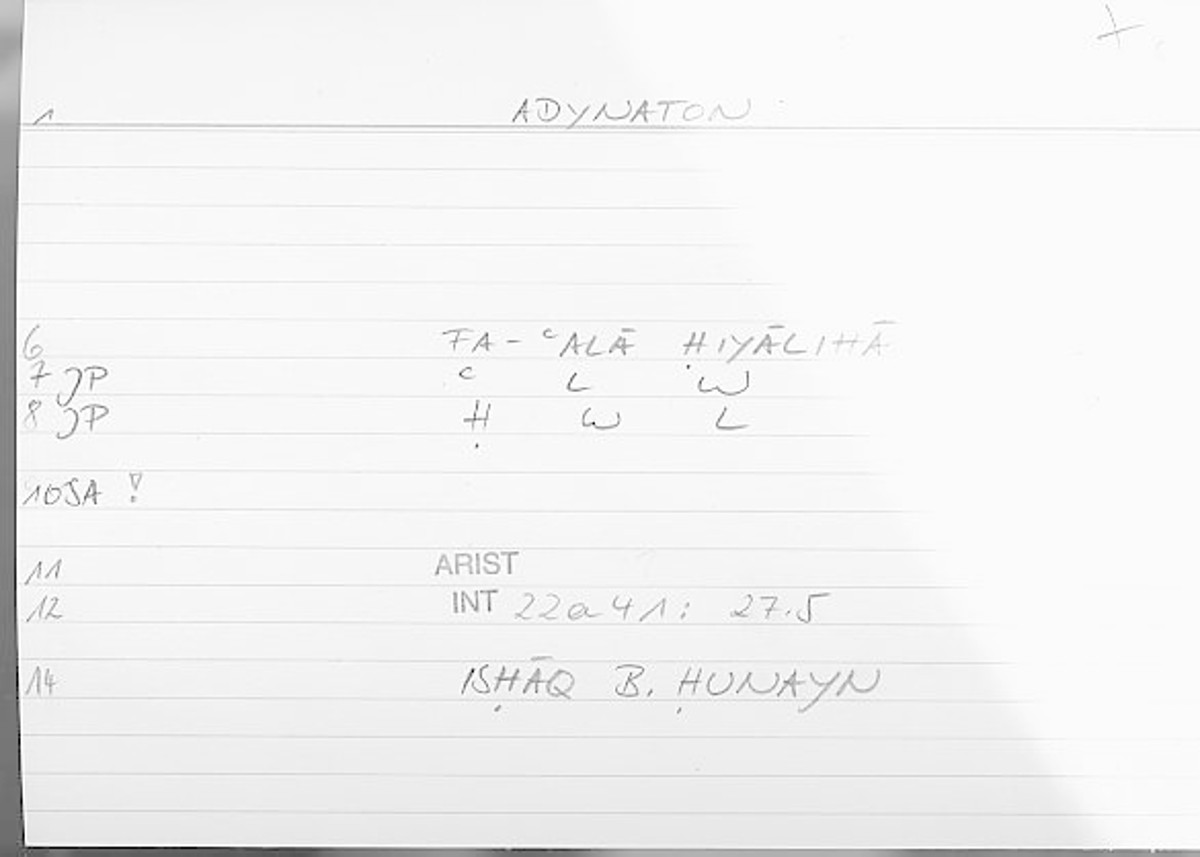 1 ADYNATON
6 FA-ʿALĀ ḤIYĀLIHĀ
7 JP ʿ L W
8 JP Ḥ W L
10 SA !
11 ARIST
12 INT 22a41: 27.5
14 ISḤĀQ B. ḤUNAYN